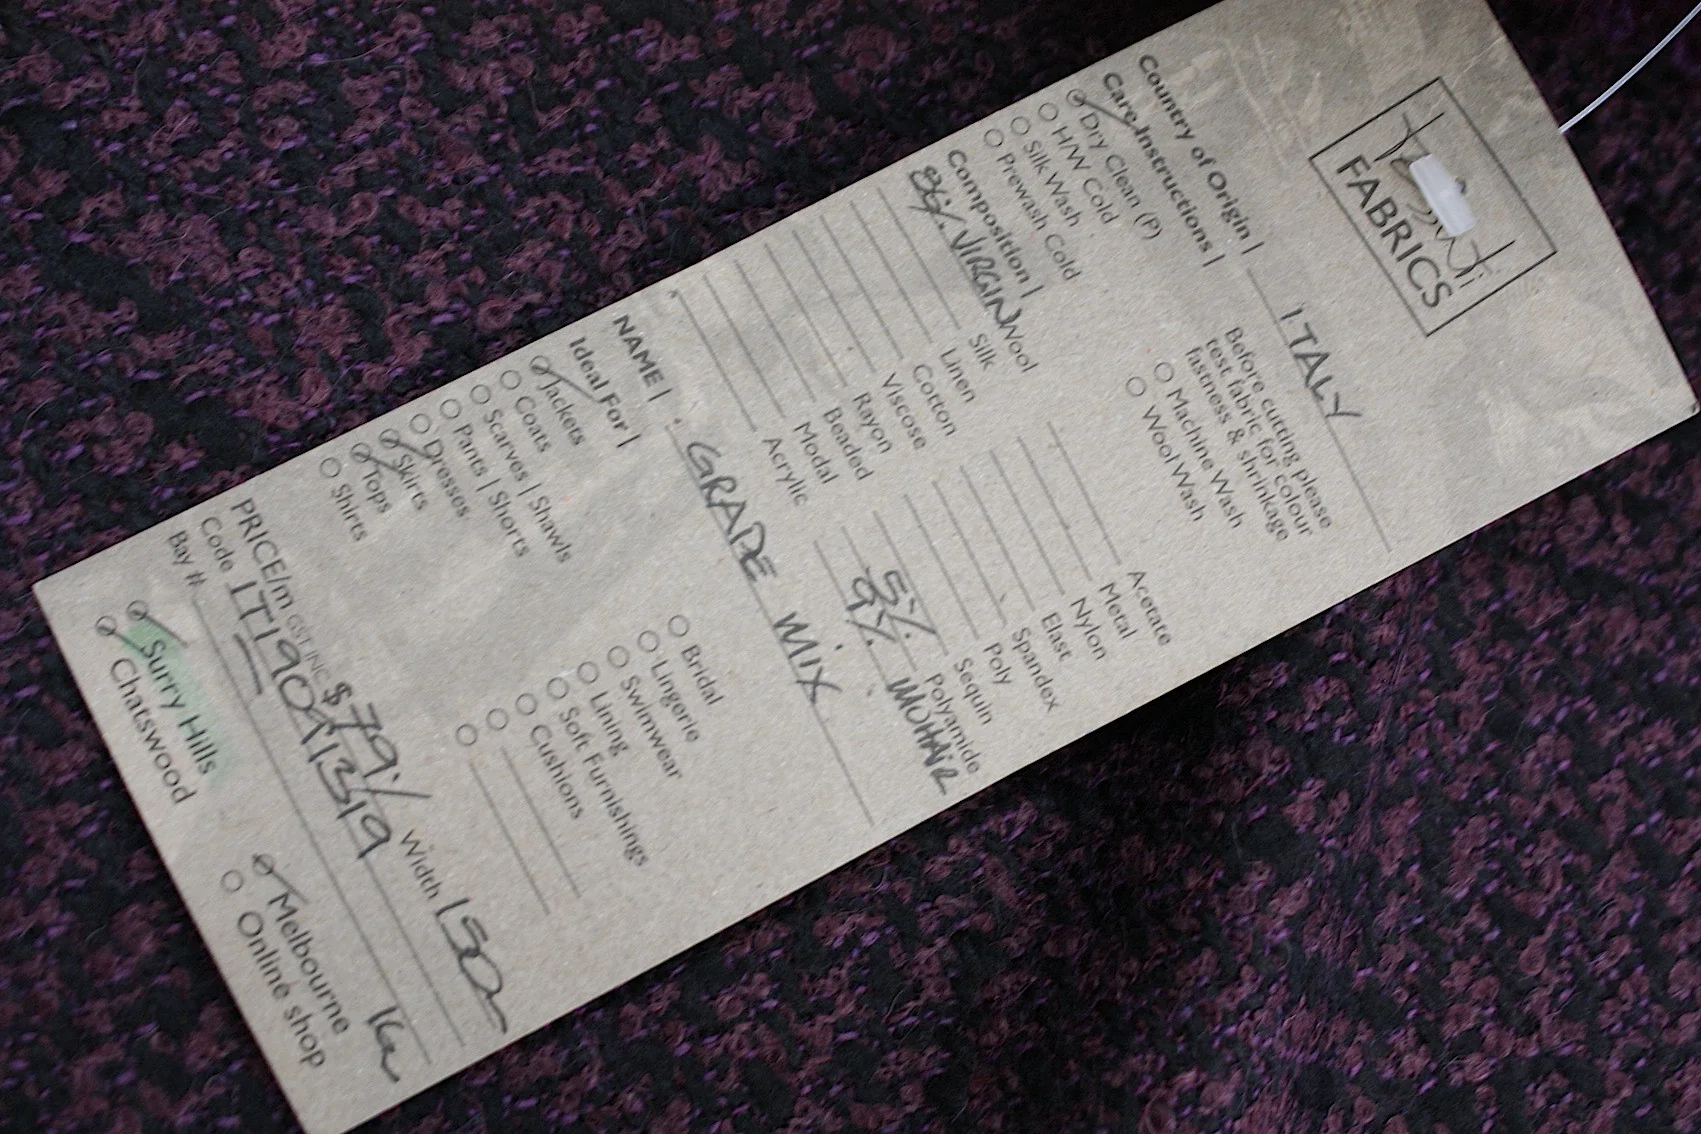 FABRICS
Country of Origin | ITALY
Care Instructions |
Dry Clean (P)
H/W Cold
Silk Wash
Prewash Cold
Before cutting please
test fabric for colour
fastness & shrinkage
Machine Wash
Wool Wash
Composition |
86% VIRGIN Wool
Silk
Linen
Cotton
Viscose
Rayon
Beaded
Modal
Acrylic
Acetate
Metal
Nylon
Elast
Spandex
Poly
Sequin
5% Polyamide
9% MOHAIR
NAME | GRADE MIX
Ideal For |
Jackets
Coats
Scarves | Shawls
Pants | Shorts
Dresses
Skirts
Tops
Shirts
Bridal
Lingerie
Swimwear
Lining
Soft Furnishings
Cushions
PRICE/m GST INC $79.- Width 150
Code
Bay #
Surry Hills
Chatswood
Melbourne
Online shop